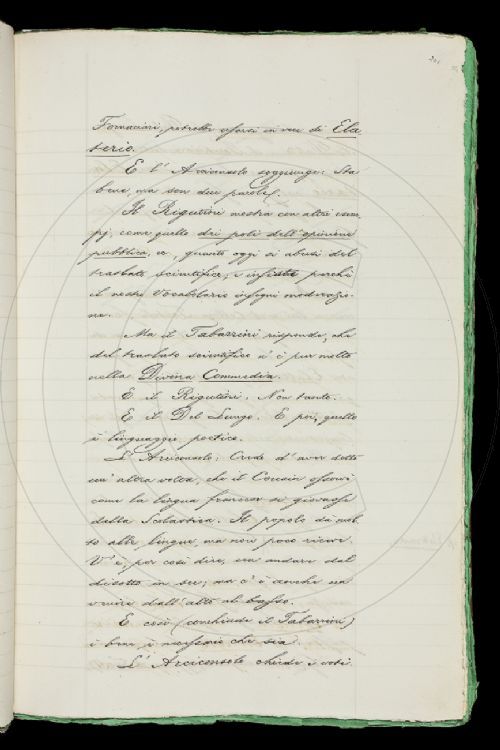 Fornaciari, potrebbe usarsi in vece di Ela
terio.
E l'Arciconsolo soggiunge: Sta
bene, ma son due parole.
Il Rigutini mostra con altri esem
pj, come quello dei poli dell'opinione
pubblica, ec., quanto oggi si abusi del
traslato scientifico; e insiste perchè
il nostro Vocabolario insegni moderazio-
ne.
Ma il Tabarrini risponde, che
del traslato scientifico n' è pur molto
nella Divina Commedia.
E il Rigutini. Non tanto.
E il Del Lungo. E poi, quello
è linguaggio poetico.
L'Arciconsolo: Crede d'aver detto
un' altra volta, che il Cousin osservò
come la lingua francese si giovasse
della Scolastica. Il popolo dà mol
to alle lingue ma non poco riceve.
V' è, per così dire, un andare dal
disotto in su; ma c' è anche un
venire dall'alto al basso.
E così (conchiude il Tabarrini)
è bene, è necessario che sia.
L'Arciconsolo chiede i voti